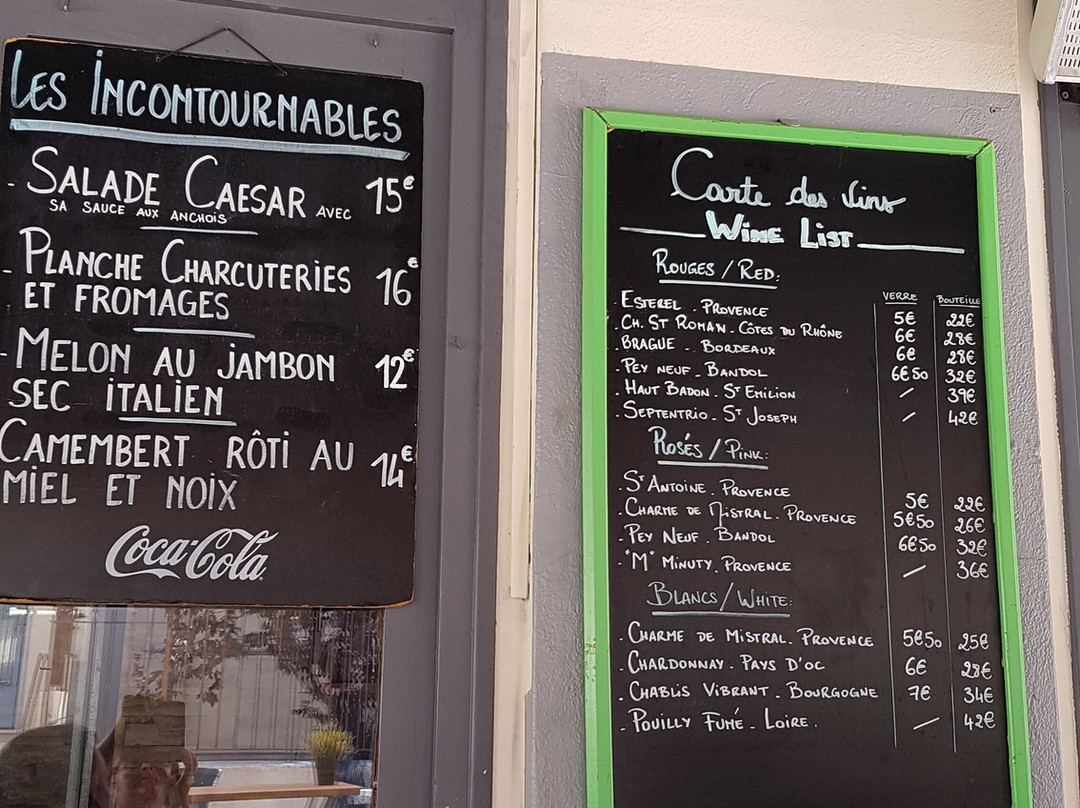 LES INCONTOURNABLES
- SALADE CAESAR AVEC 15€
SA SAUCE AUX ANCHOIS
- PLANCHE CHARCUTERIES 16€
ET FROMAGES
- MELON AU JAMBON 12€
SEC ITALIEN
CAMEMBERT RÔTI AU 14€
MIEL ET NOIX
Coca-Cola
Carte des Vins
WINE LIST
ROUGES / RED:
VERRE BOUTEILLE
. ESTEREL . PROVENCE 5€ 22€
. CH. ST ROMAN . CÔTES DU RHÔNE 6€ 28€
. BRAGUE . BORDEAUX 6€ 28€
. PEY NEUF . BANDOL 6€50 32€
. HAUT BADON . ST EMILION / 39€
. SEPTENTRIO . ST JOSEPH / 42€
ROSÉS / PINK:
. ST ANTOINE . PROVENCE 5€ 22€
. CHARME DE MISTRAL . PROVENCE 5€50 26€
. PEY NEUF . BANDOL 6€50 32€
. "M" MINUTY . PROVENCE / 36€
BLANCS / WHITE:
. CHARME DE MISTRAL . PROVENCE 5€50 25€
. CHARDONNAY . PAYS D'OC 6€ 28€
. CHABLIS VIBRANT . BOURGOGNE 7€ 34€
. POUILLY FUMÉ . LOIRE . / 42€